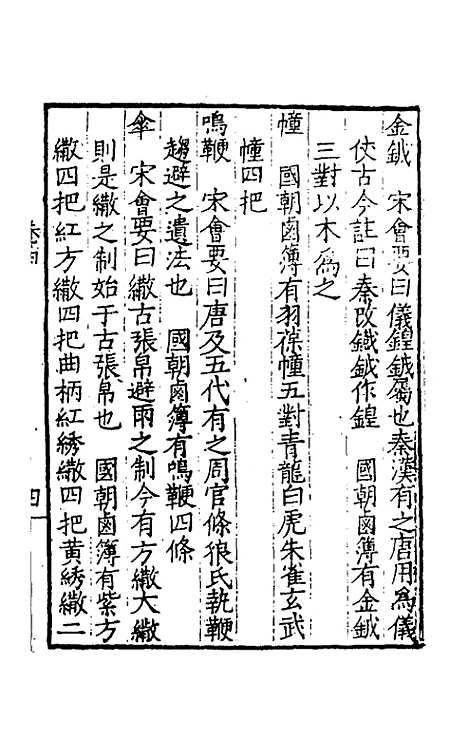 金鉞　宋會要曰儀鍠鉞屬也秦漢有之唐用為儀
伎古今註曰秦改鐵鉞作鍠　國朝鹵簿有金鉞
三對以木為之
幢　國朝鹵簿有羽葆幢五對青龍白虎朱雀玄武
幢四把
鳴鞭　宋會要曰唐及五代有之周官條狼氏執鞭
趨避之遺法也　國朝鹵簿有鳴鞭四條
傘　宋會要曰繖古張帛避雨之制今有方繖大繖
則是繖之制始于古張帛也　國朝鹵簿有紫方
繖四把紅方繖四把曲柄紅綉繖四把黃綉繖二
四